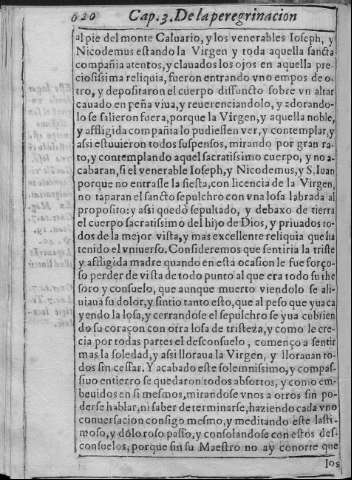 620 Cap. 3. De la peregrinacion
al pie del monte Caluario, y los venerables Ioseph, y
Nicodemus estando la Virgen y toda aquella sancta
compañia atentos, y clauados los ojos en aquella pre
ciosissima reliquia, fueron entrando vno empos de o-
tro, y depositaron el cuerpo diffuncto sobre vn altar
cauado en peña viua, y reuerenciandolo, y adorando-
lo se salieron fuera, porque la Virgen, y aquella noble,
y affligida compañia lo pudiessen ver, y contemplar, y
assi estuuieron todos suspensos, mirando por gran ra-
to, y contemplando aquel sacratissimo cuerpo, y no a-
cabaran, si el venerable Ioseph, y Nicodemus, y S. Iuan
porque no entrasse la fiesta, con licencia de la Virgen,
no taparan el sancto sepulchro con vna losa labrada al
proposito: y assi quedò sepultado, y debaxo de tierra
el cuerpo sacratissimo del hijo de Dios, y priuados to-
dos de la mejor vista, y mas excellente reliquia que ha
tenido el vniuerso. Consideremos que sentiria la triste
y affligida madre quando en esta ocasion le fue forço-
so perder de vista de todo punto al que era todo su the
soro y consuelo, que aunque muerto viendolo se ali-
uiaua su dolor, y sintio tanto esto, que al peso que yua ca
yendo la losa, y cerrandose el sepulchro se yua cubrien
do su coraçon con otra losa de tristeza, y como le cre-
cia por todas partes el desconsuelo, començo a sentir
mas la soledad, y assi lloraua la Virgen, y llorauan to-
dos sin cessar. Y acabado este solemnissimo, y compas-
siuo entierro se quedaron todos absortos, y como em-
beuidos en si mesmos, mirandose vnos a otros sin po-
derse hablar, ni saber determinarse, haziendo cada vno
conuersacion consigo mesmo, y meditando este lasti-
moso, y doloroso passo, y consolandose con estos des-
consuelos, porque sin su Maestro no ay conorte que
los